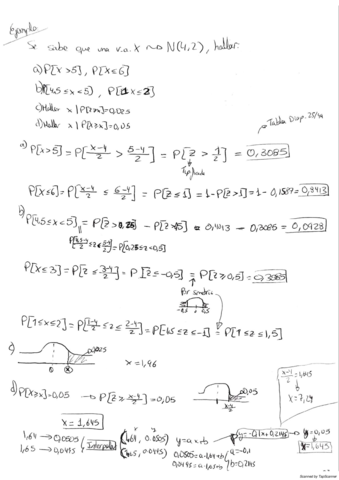 Ejemplo
Se sabe que una v.a. X ~> N(4,2), hallar:
a) P[X>5], P[X≤6]
b) P[4,5≤x<5], P[1≤x≤2]
c) Hallar x | P[X≥x]=0,025
d) Hallar x | P[X≥x]=0,05
a) P[X>5] = P[x-4/2 > 5-4/2] = P[Z > 1/2] = 0,3085
Tipificada
P[X≤6] = P[x-4/2 ≤ 6-4/2] = P[Z≤1] = 1-P[Z>1] = 1-0,1587 = 0,8413
b) P[4,5≤x<5] = P[Z>0,25] - P[Z>0,5] = 0,4013 - 0,3085 = 0,0928
P[4,5-4/2 ≤ Z ≤ 5-4/2] = P[0,25≤Z≤0,5]
P[X≤3] = P[Z≤ 3-4/2] = P[Z≤-0,5] = P[Z≥0,5] = 0,3085
Por simetría
-0,5 0,5
P[1≤x≤2] = P[1-4/2 ≤ Z ≤ 2-4/2] = P[-1,5≤Z≤-1] = P[1≤Z≤1,5]
c)
x = 1,96
d) P[X≥x]=0,05 → P[Z≥ x-4/2] = 0,05
0,05
x-4/2
x-4/2 = 1,645
x = 7,29
x = 1,645
1,64 → 0,0505
1,65 → 0,0495
Interpolar
(1,64, 0,0505)
(1,65, 0,0495)
y = ax+b
0,0505 = a·1,64+b
0,0495 = a·1,65+b
a = -0,1
b = 0,2145
y = -0,1x + 0,2145
y = 0,05
x = 1,645
Scanned by TapScanner